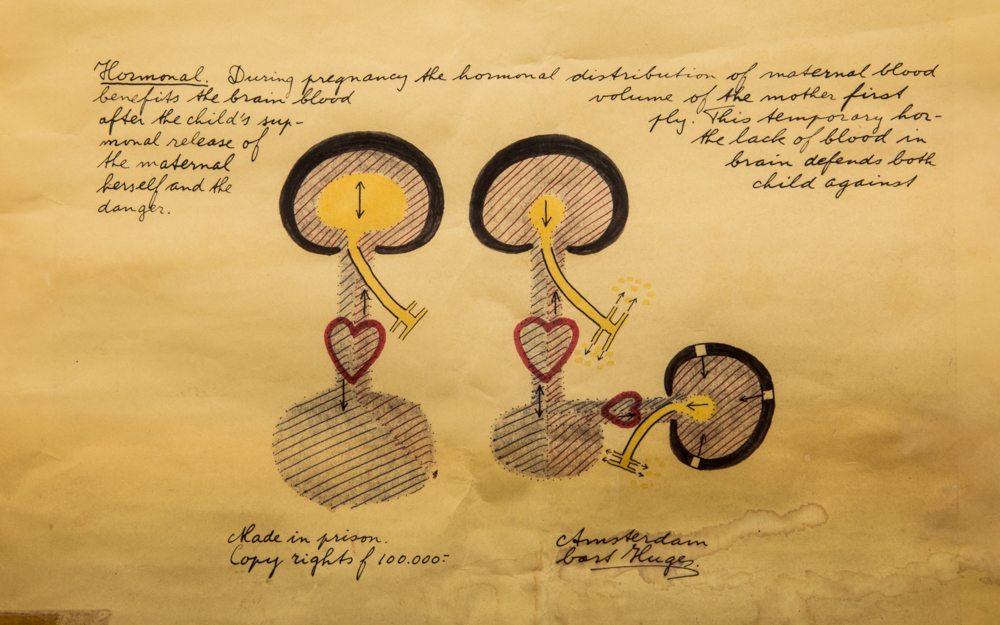 Hormonal. During pregnancy the hormonal distribution of maternal blood
benefits the brain blood volume of the mother first
after the child's sup- ply. This temporary hor-
monal release of the lack of blood in
the maternal brain defends both
herself and the child against
danger.
Made in prison.
Copy rights f 100.000.-
Amsterdam
bart Huges.